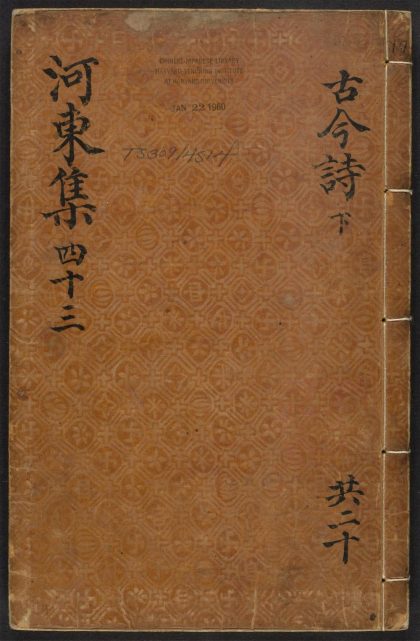 古今詩下
共二十
河東集四十三
CHINESE-JAPANESE LIBRARY
HARVARD-YENCHING INSTITUTE
AT HARVARD UNIVERSITY
JAN 22 1960